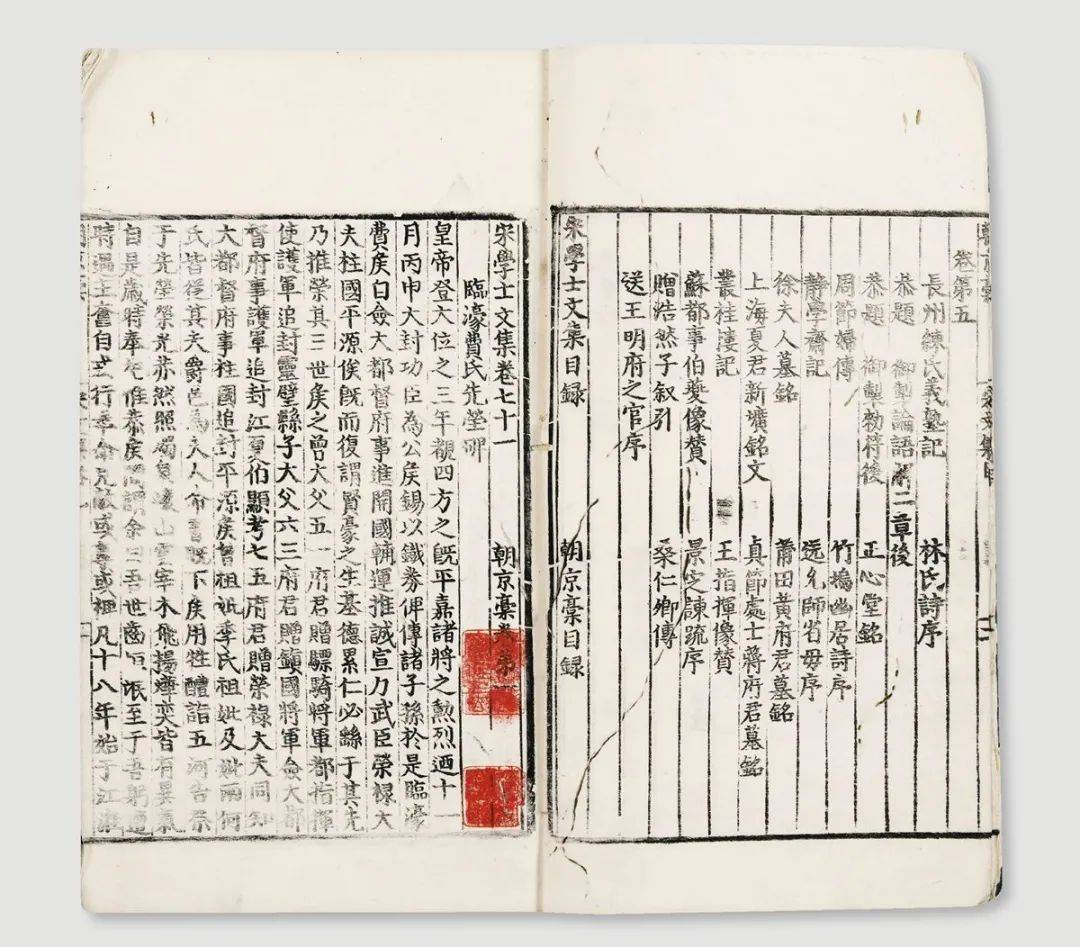 卷第五
長州練氏義塾記 林氏詩序
恭題 御製論語解二章後
恭題 御製勑符後 正心堂銘
周節婦傳 竹塢幽居詩序
靜學齋記 送允師省母序
徐夫人墓銘 莆田黃府君墓銘
上海夏君新壙銘文 貞節處士蔣府君墓銘
叢桂淒記 王指揮像賛
蘇都事伯夔像賛 景定諫疏序
贈浩然子叙引 桑仁卿傳
送王明府之官序
宋學士文集目録 朝京藁目録
宋學士文集卷七十一 朝京藁卷第一
臨濠費氏先塋碑
皇帝登大位之三年覩四方之旣平嘉諸將之勲烈迺十一
月丙申大封功臣為公矦錫以鐵券俾傳諸子孫於是臨濠
費矦自僉大都督府事進開國輔運推誠宣力武臣榮祿大
夫柱國平源矦旣而復謂賢豪之生基德累仁必繇于其先
乃推榮其三世矦之曾大父五一府君贈驃騎將軍都指揮
使護軍追封靈璧縣子大父六三府君贈鎮國將軍僉大都
督府事護軍追封江夏伯顯考七五府君贈榮祿大夫同知
大都督府事柱國追封平源矦曾祖妣季氏祖妣及妣兩何
氏皆從其夫爵邑為夫人命書旣下矦用牲醴詣五河告祭
于先塋榮光赫然照燭泉壤山雲宰木飛揚燁奕皆有異氣
自是歲時奉祀惟恭矦間謂余曰吾世 至于吾躬遭
時遇主 自 行 或 或 凡十八年始于江